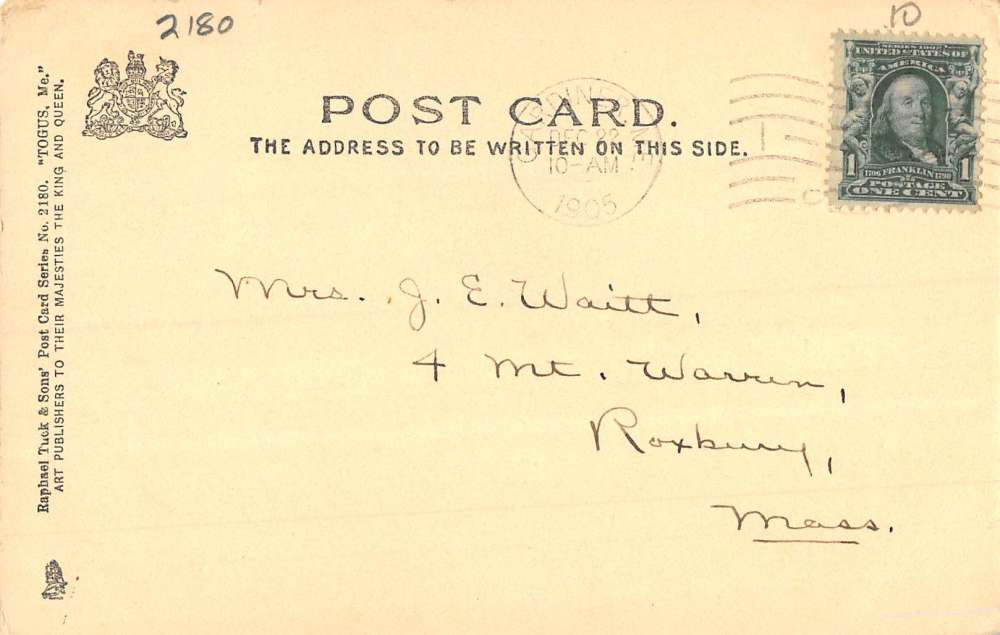 2180
10
Raphael Tuck & Sons' Post Card Series No. 2180. "TOGUS, Me."
ART PUBLISHERS TO THEIR MAJESTIES THE KING AND QUEEN.
POST CARD.
THE ADDRESS TO BE WRITTEN ON THIS SIDE.
DEC 22
10-AM
1905
SERIES 1902
UNITED STATES OF
AMERICA
1 1
1706 FRANKLIN 1790
POSTAGE
ONE CENT
Mrs. J. E. Waitt,
4 Mt. Warren,
Roxbury,
Mass.